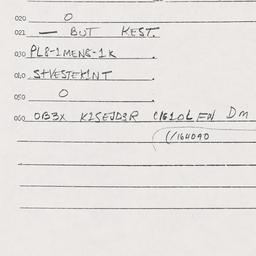 020 O
021 — BUT KEST.
030 PL8-1MENG-1K .
040 S+VESTEKINT .
050 O .
060 OB3X K2SEJD3R C1G10L
(/164090